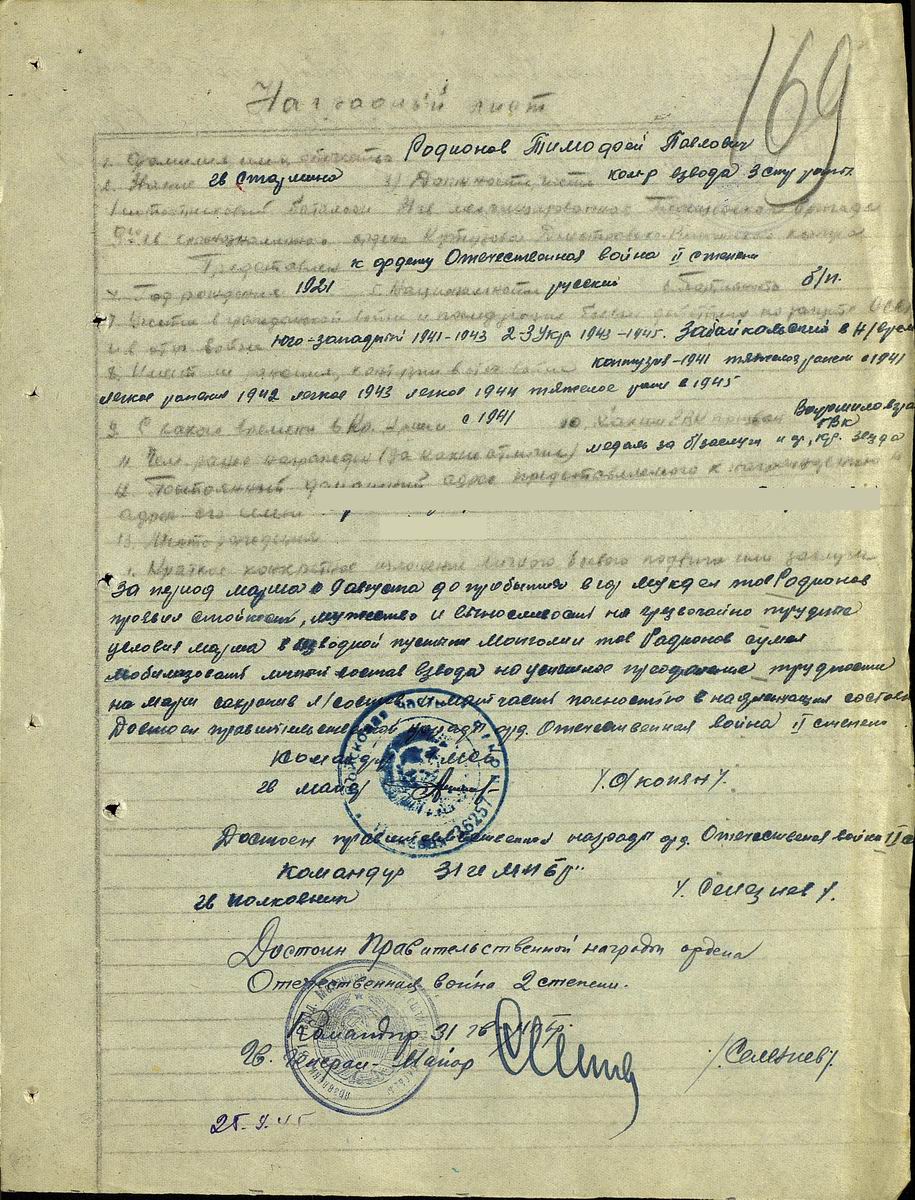 169
Наградной лист
1. Фамилия имя, отчество Родионов Тимофей Павлович
2. Звание гв Старшина 3) Должность часть ком-р взвода 3 стр роты
1 мотострелковый батальон 31 гв механизированной бригады
9го гв краснознаменного ордена Кутузова корпуса
Представлен к ордену Отечественная война II степени
4. Год рождения 1921 5. Национальность русский 6. Партийность б/п.
7. Участие в гражданской войне и последующих боевых действиях по защите СССР
и в отеч войне юго-западный 1941-1943 2-3 Укр 1943-1945. Забайкальский в н/время
8. Имеет ли ранения, контузии в отеч войне контузия-1941 тяжелое ранен в 1941
легкое ранения 1942 легкое 1943 легкое 1944 тяжелое ран в 1945
9. С какого времени в Кр. Армии с 1941 10. Каким РВК призван Ворошиловград
ГВК
11. Чем ранее награжден (за какие отличия) медаль за б/заслуги и ор, Кр. Звезда
12. Постоянный домашний адрес представляемого к награждению и
адрес его семьи
13. Место рождения
1. Краткое конкретное изложение личного боевого подвига или заслуги
За период марша с 9 августа до прибытия в гор Мукден тов Родионов
проявил стойкость, мужество и выносливость на чрезвычайно трудных
условия марша в безводной пустыни Монголии тов Родионов сумел
мобилизовать личный состав взвода на успешное преодоление трудности
на марш сохранив л/состав и матчасть полностью в надлежащем состоян
Достоен правительственной награды орд. Отечественная война II степени
Командир мсб
гв майор /Акопян/.
Войсковая часть полевая почта 26257
Достоен правительственной награды орд. Отечественная война II ст
Командир 31 гв мнбр"
гв полковник /. Селезнев /.
Достоин Правительственной награды ордена
Отечественная война 2 степени.
Командир 31 гв
Гв. Генерал-Майор /Селезнев/.
25.9.45